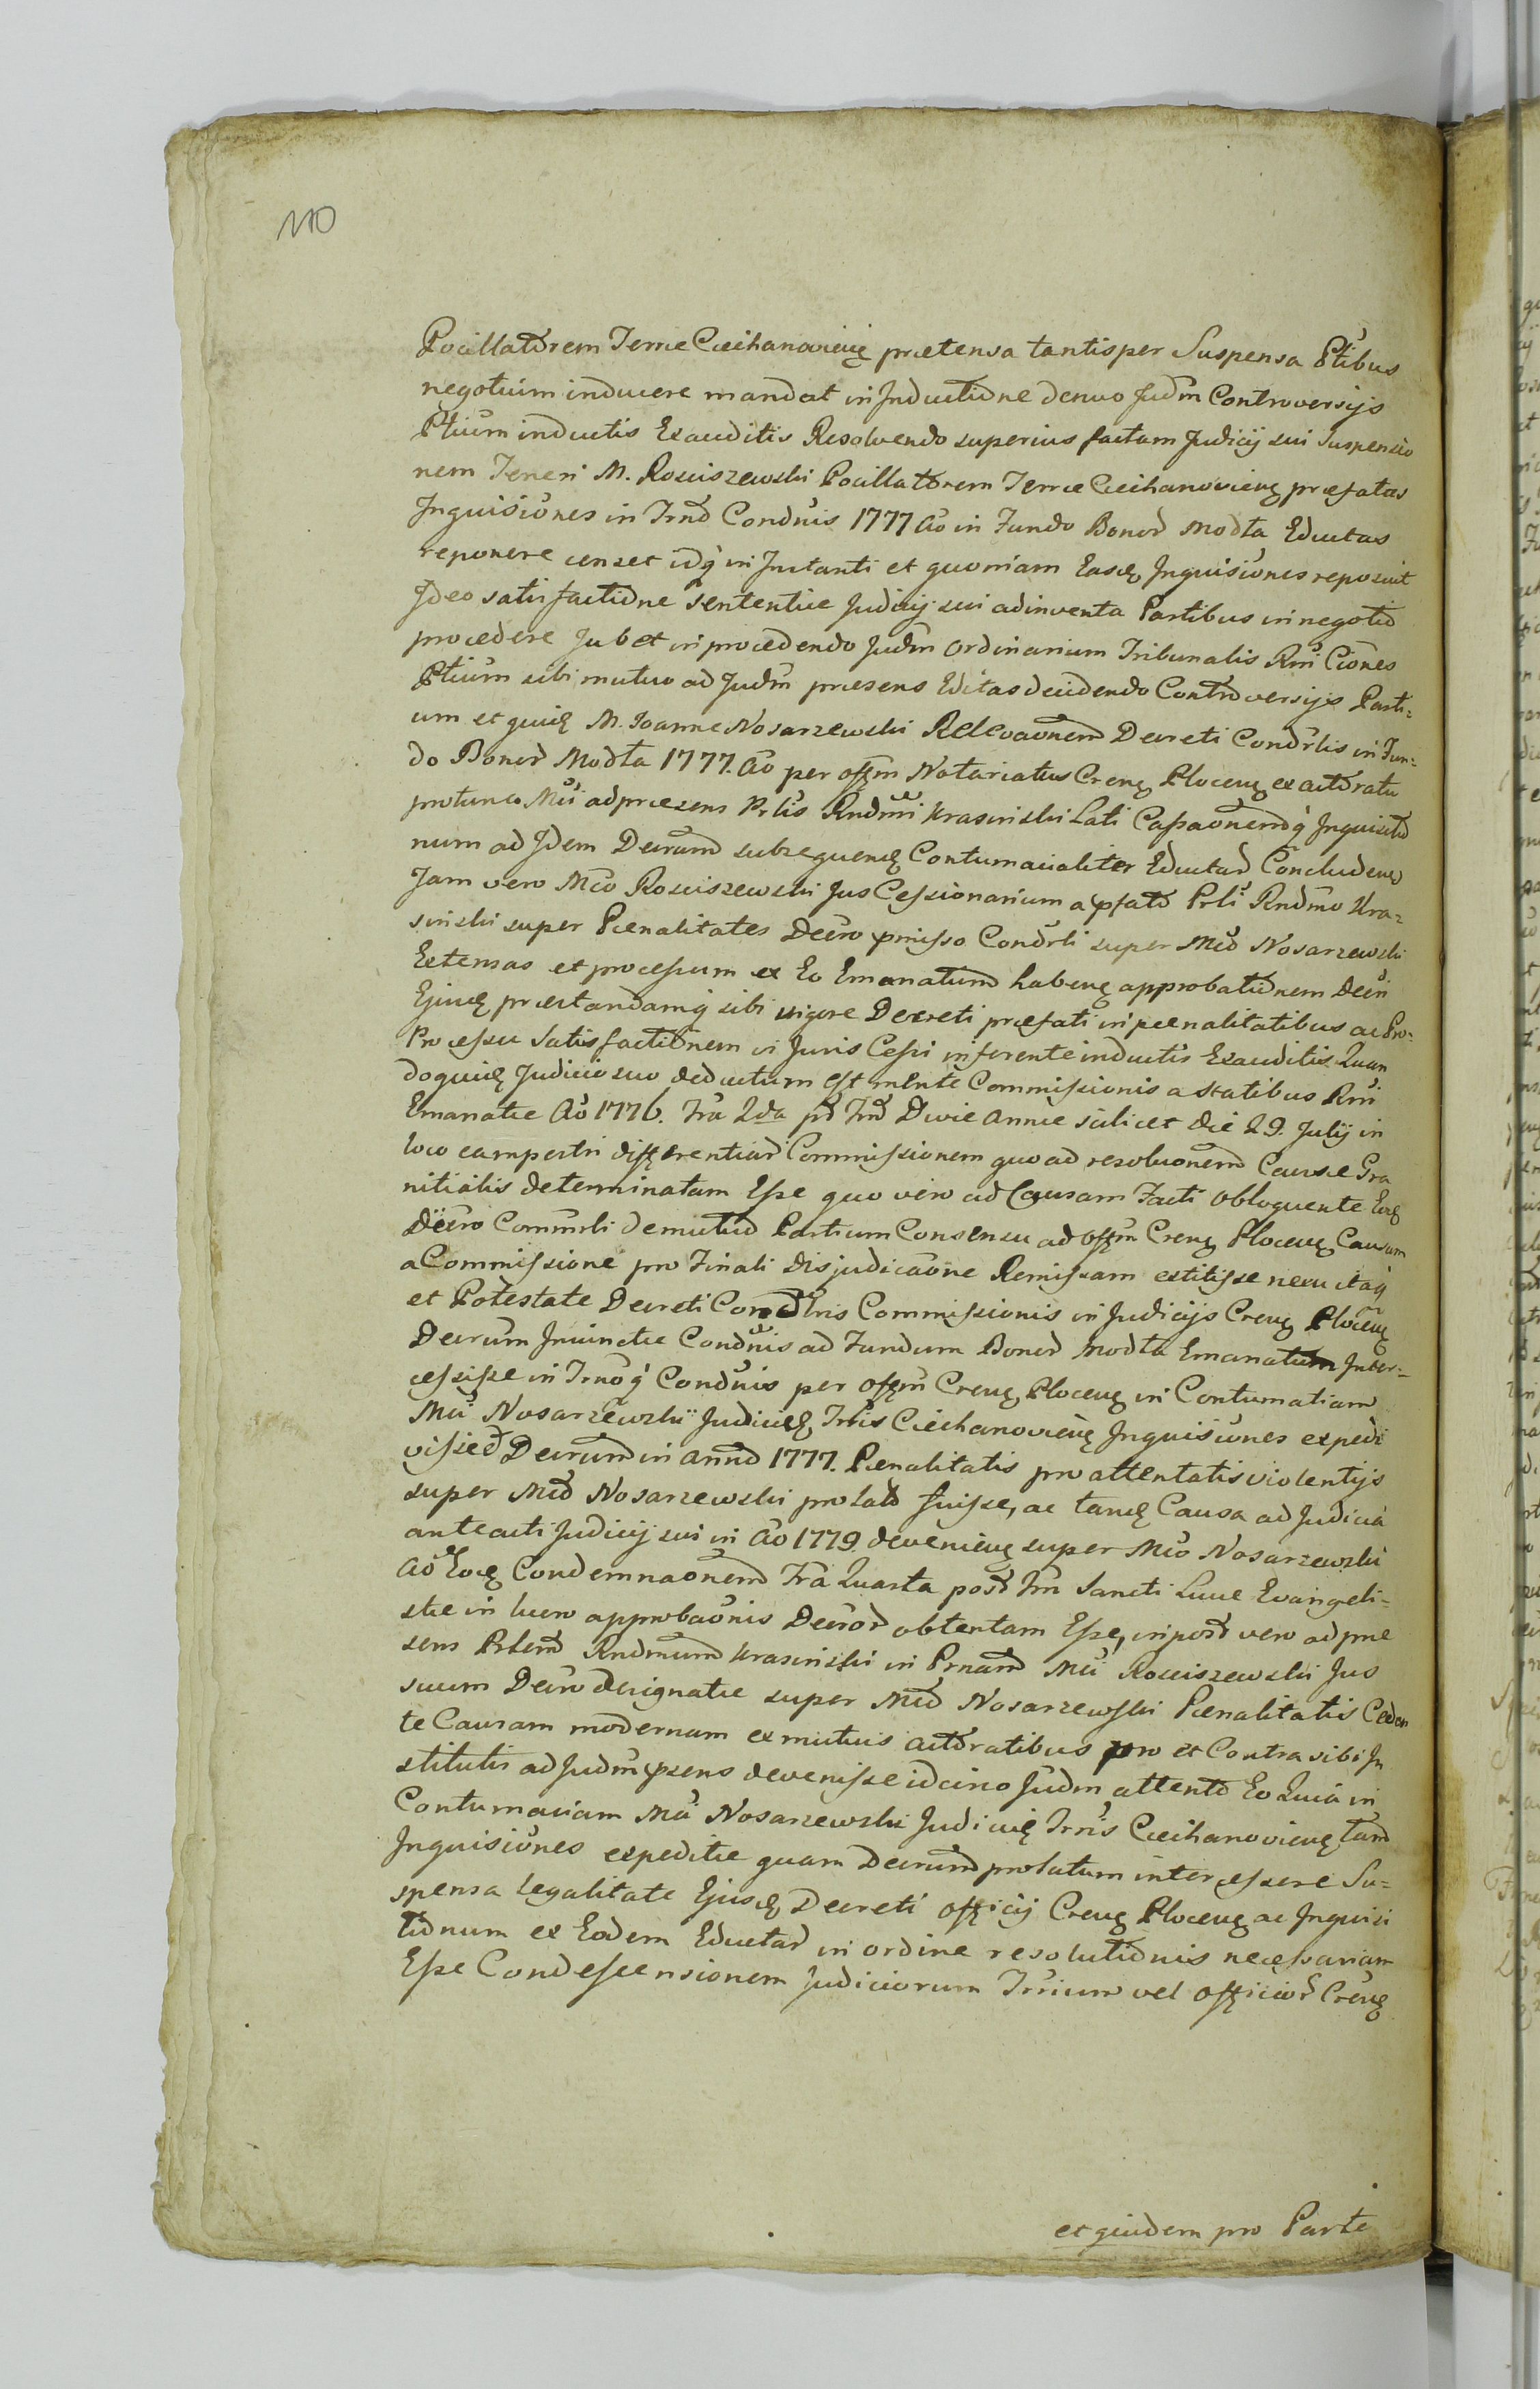 110
Pocillatorem Terræ Ciechanovieñ prætensa tantisper Suspensa Ptibus
negotium inducere mandat in Inductione denuo Judm Controversijs
Ptium inductis Exauditis Resolvendo superius factam Judicij sui Suspensio
nem Teneri M. Rosciszewski Pocillatorem Terræ Ciechanovieñ præfatas
Inquisiones in Trno Condnis 1777 Ao in Fundo Bonor Modła Eductas
reponere censet idq in Instanti et quoniam Easd Inquisiones reposuit
Ideo satisfactione Sententiæ Judicij sui adinventa Partibus in negotio
procedere Jubet in procedendo Judm Ordinarium Tribunalis Rni Ciones
Ptium sibi mutuo ad Judm præsens Editas decidendo Controversijs Parti=
um et quid M. Joanne Nosarzewski Relevaonem Decreti Condrlis in Fun=
do Bonor Modła 1777. Ao per offm Notariatus Creñ Ploceñ ex actoratu
protunc Mci ad præsens Prlis Rndmi Krasinski Lati Cassaonemq Inquisitio
num ad Idem Decrum subsequeñ Contumacialiter Eductar Concludeñ
Jam vero Mco Rosciszewski Jus Cessionarium a pfato Prli Rndmo Kra=
sinski super Pœnalitates Decro pmisso Condrli super Mco Nosarzewski
Extensas et processum ex Eo Emanatum habeñ approbationem Decri
Ejusd præstandamq sibi vigore Decreti præfati in pœnalitatibus ac Pro=
Processu Satisfactionem vi Juris Cessi inferente inductis Exauditis Quan
doquid Judicio suo deductum est mente Commissionis a Statibus Rni
Emanatæ Ao 1776. Fra 2da pt Fm Divæ Annæ scilicet die 29. Julij in
loco campestri differentiar Commissionem quo ad resoluonem Causæ Gra
nitialis determinatam Esse quo vero ad Causam Facti obloquente Eod
Decro Commrli de mutuo Partium Consensu ad offm Creñ Ploceñ Causam
a Commissione pro Finali disjudicaone Remissam extitisse nexu itaq
et Potestate Decreti Condrlnis Commissionis in Judicijs Creñ Ploceñ
Decrum Injunctæ Condnis ad Fundum Bonor Modła Emanatum Inter=
cessisse in Trnoq Condnis per offm Creñ Ploceñ in Contumatiam
Mci Nosarzewski Judicis Trris Ciechanovieñ Inquisiones expedi
visse Decrum in Anno 1777. Pœnalitatis pro attentatis violentijs
super Mco Nosarzewski prolato fuisse, ac tand Causa ad Judicia
anteacti Judicij sui in Ao 1779 devenieñ super Mco Nosarzewski
Ao Eod Condemnaonem Fra Quarta post Fm Sancti Lucæ Evangeli=
stæ in lucro approbaonis Decror obtentam Esse, in post vero ad præ
sens Prlem Rndmum Krasinski in Prnam Mci Rosciszewski Jus
suum Decro designatæ super Mco Nosarzewski Pœnalitatis Ceden
te Causam modernam ex mutuis actoratibus pro et Contra sibi In
stitutis ad Judm psens devenisse idcirco Judm attento Eo Quia in
Contumaciam Mci Nosarzewski Judicis Trris Ciechanovieñ tam
Inquisiones expeditæ quam Decrum prolatum intercessere Su=
spensa Legalitate Ejusd Decreti officij Creñ Ploceñ ac Inquisi
tionum ex Eodem Eductar in ordine resolutionis necessariam
Esse Condescensionem Judiciorum Trrium vel officior Creñ
et quidem pro Parte